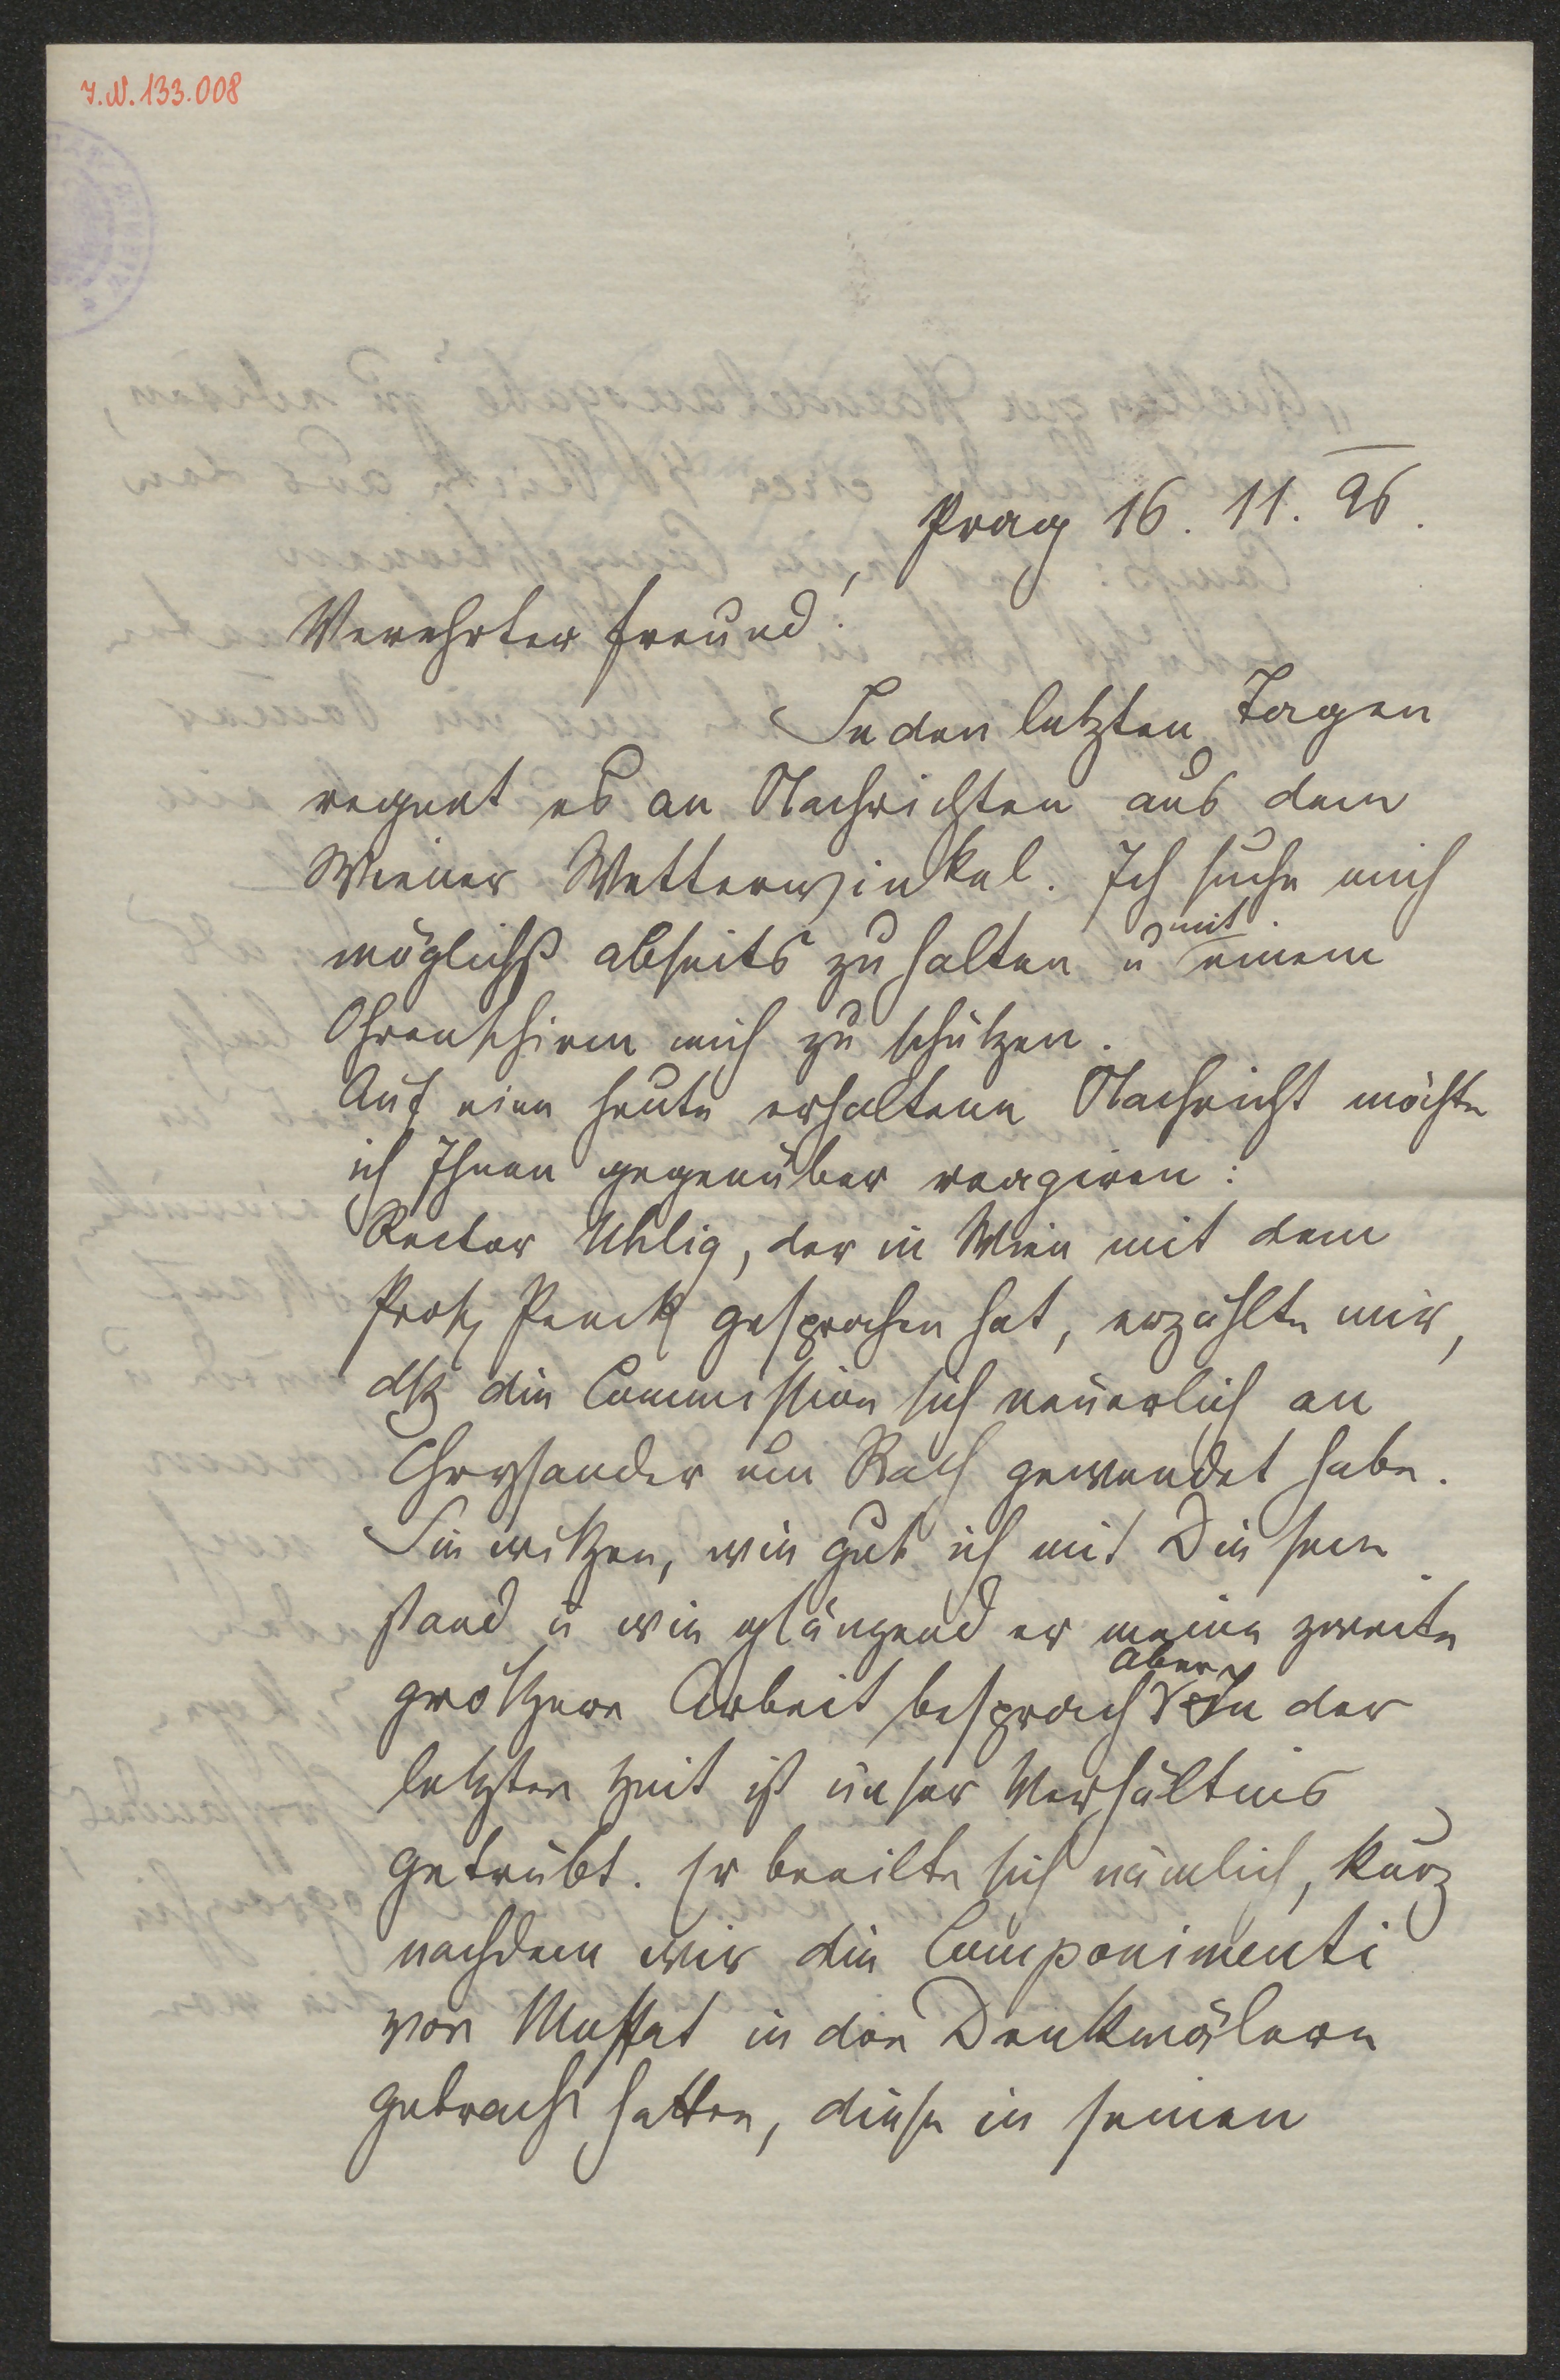 J.N. 133.008
Prag 16. 11. 96.
Verehrter Freund!
In den letzten Tagen
regnet es an Nachrichten aus dem
Wiener Wetterwinkel. Ich suche mich
möglichst abseits zu halten u mit einem
Ohrenschirm mich zu schützen.
Auf eine heute erhaltene Nachricht möchte
ich Ihnen gegenüber reagiren:
Rector Uhlig, der in Wien mit dem
Prof. Penck gesprochen hat, erzählte mir,
dß die Commission sich neuerlich an
Chrysander um Rath gewendet habe.
Sie wißen, wie gut ich mit Diesem
stand u wie glänzend er meine zweite
größere Arbeit besprach. Aber in der
letzten Zeit ist unser Verhältnis
getrübt. Er beeilte sich nämlich, kurz
nachdem wir die Componimenti
von Muffat in den Denkmälern
gebracht hatten, diese in seinen